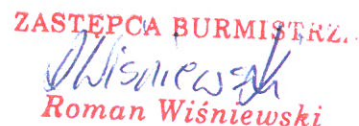 ZASTĘPCA BURMISTRZ.
Wiśniewski
Roman Wiśniewski